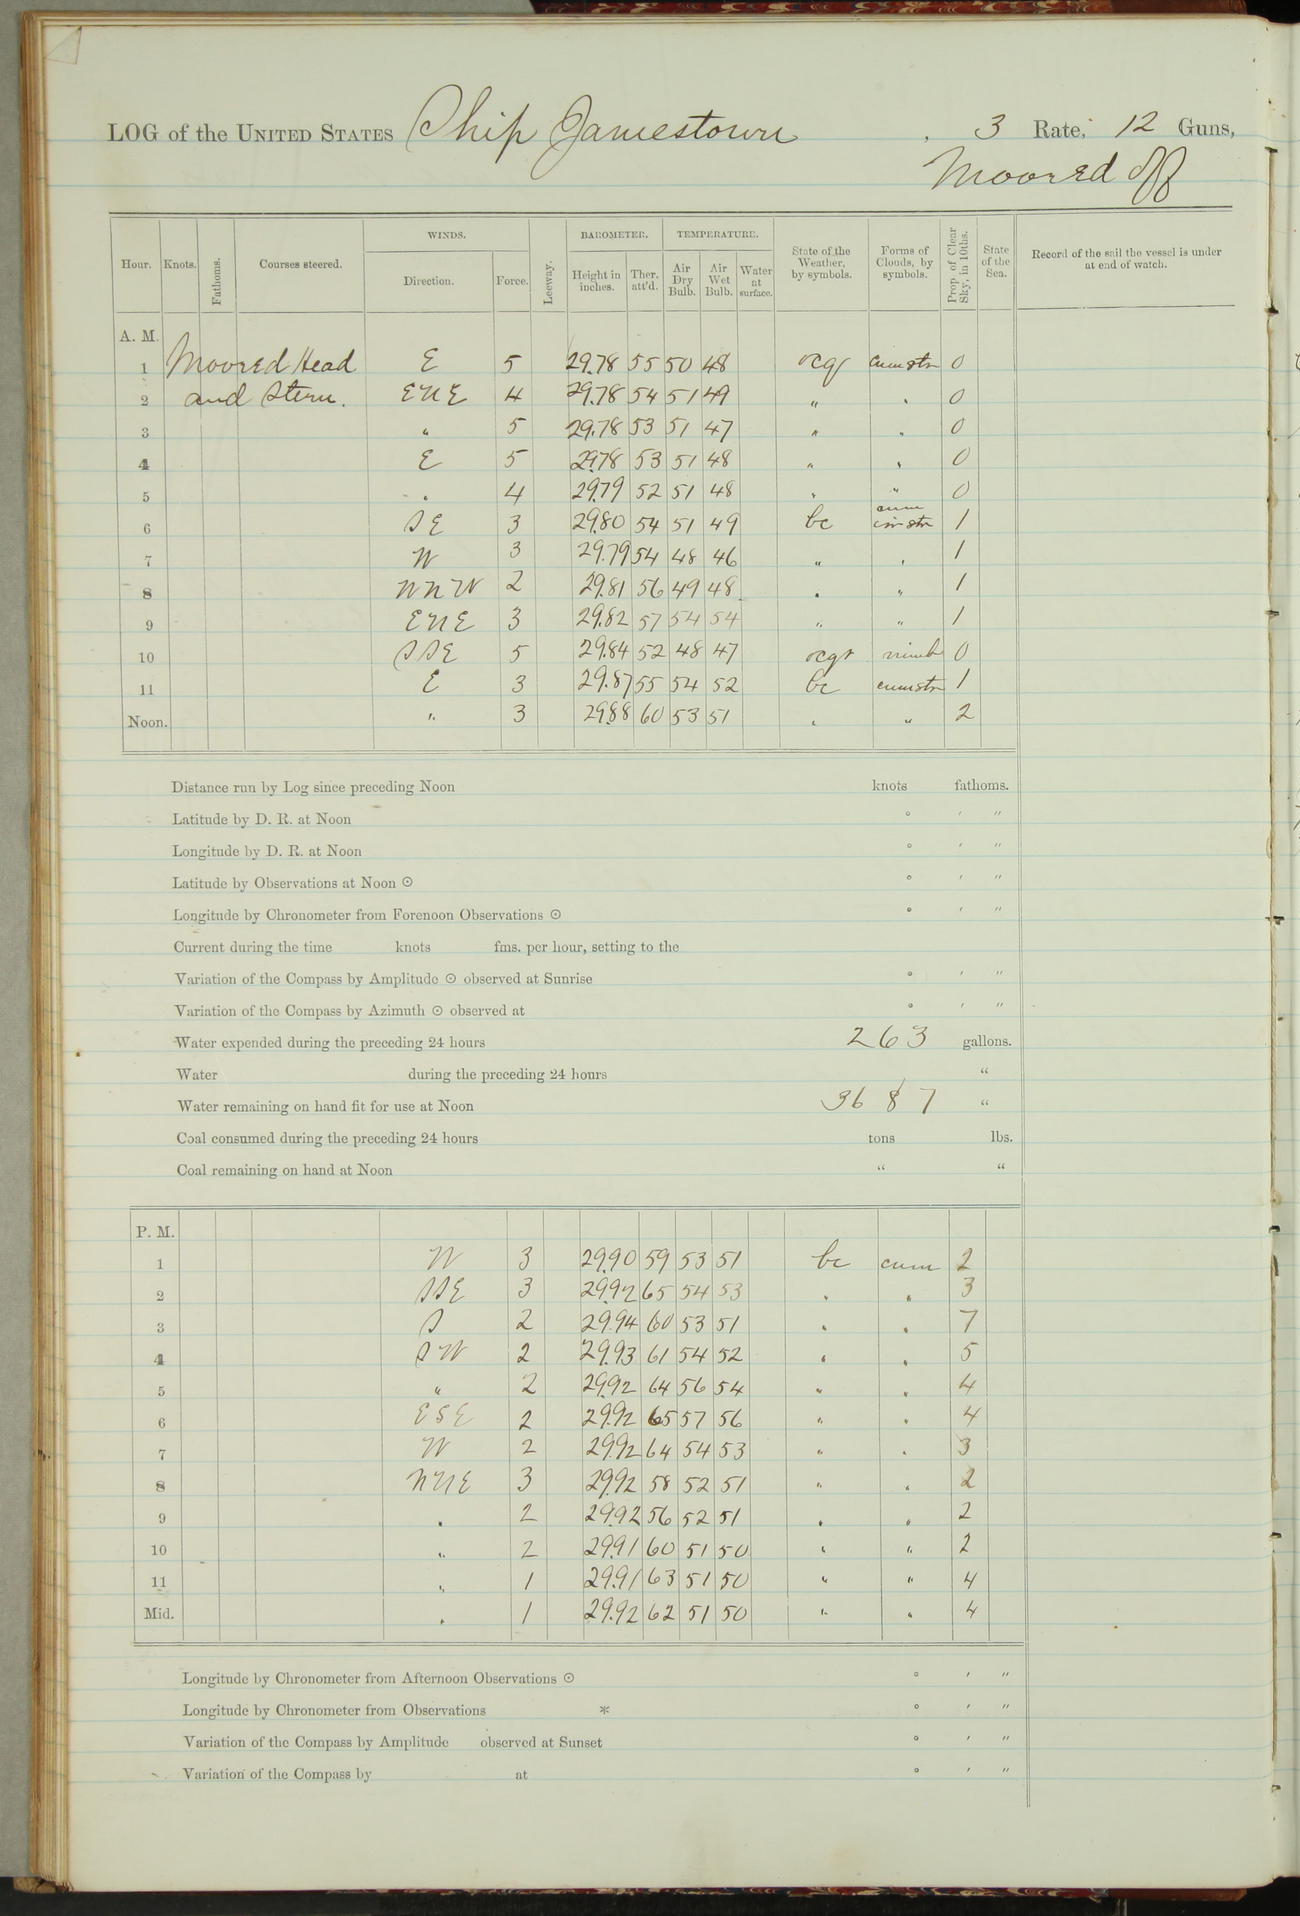 LOG of the UNITED STATES Ship Jamestown , 3 Rate, 12 Guns,
Moored off
Hour. Knots. Fathoms. Courses steered. WINDS. Direction. Force. Leeway. BAROMETER. Height in inches. Ther. att'd. TEMPERATURE. Air Dry Bulb. Air Wet Bulb. Water at surface. State of the Weather, by symbols. Forms of Clouds, by symbols. Prop. of Clear Sky, in 10ths. State of the Sea. Record of the sail the vessel is under at end of watch.
A. M.
1 Moored Head E 5 29.78 55 50 48 ocq cumstr 0
2 and Stern. ENE 4 29.78 54 51 49 " " 0
3 " 5 29.78 53 51 47 " " 0
4 E 5 29.78 53 51 48 " " 0
5 " 4 29.79 52 51 48 " " 0
6 SE 3 29.80 54 51 49 bc cum cirstr 1
7 W 3 29.79 54 48 46 " " 1
8 WNW 2 29.81 56 49 48 " " 1
9 ENE 3 29.82 57 54 54 " " 1
10 SSE 5 29.84 52 48 47 ocqr nimb 0
11 E 3 29.87 55 54 52 bc cumstr 1
Noon. " 3 29.88 60 53 51 " " 2
Distance run by Log since preceding Noon knots fathoms.
Latitude by D. R. at Noon ° ′ ″
Longitude by D. R. at Noon ° ′ ″
Latitude by Observations at Noon ⊙ ° ′ ″
Longitude by Chronometer from Forenoon Observations ⊙ ° ′ ″
Current during the time knots fms. per hour, setting to the
Variation of the Compass by Amplitude ⊙ observed at Sunrise ° ′ ″
Variation of the Compass by Azimuth ⊙ observed at ° ′ ″
Water expended during the preceding 24 hours 263 gallons.
Water during the preceding 24 hours "
Water remaining on hand fit for use at Noon 3687 "
Coal consumed during the preceding 24 hours tons lbs.
Coal remaining on hand at Noon " "
P. M.
1 W 3 29.90 59 53 51 bc cum 2
2 SSE 3 29.92 65 54 53 " " 3
3 S 2 29.94 60 53 51 " " 7
4 SW 2 29.93 61 54 52 " " 5
5 " 2 29.92 64 56 54 " " 4
6 ESE 2 29.92 65 57 56 " " 4
7 W 2 29.92 64 54 53 " " 3
8 NNE 3 29.92 58 52 51 " " 2
9 " 2 29.92 56 52 51 " " 2
10 " 2 29.91 60 51 50 " " 2
11 " 1 29.91 63 51 50 " " 4
Mid. " 1 29.92 62 51 50 " " 4
Longitude by Chronometer from Afternoon Observations ⊙ ° ′ ″
Longitude by Chronometer from Observations * ° ′ ″
Variation of the Compass by Amplitude observed at Sunset ° ′ ″
Variation of the Compass by at ° ′ ″